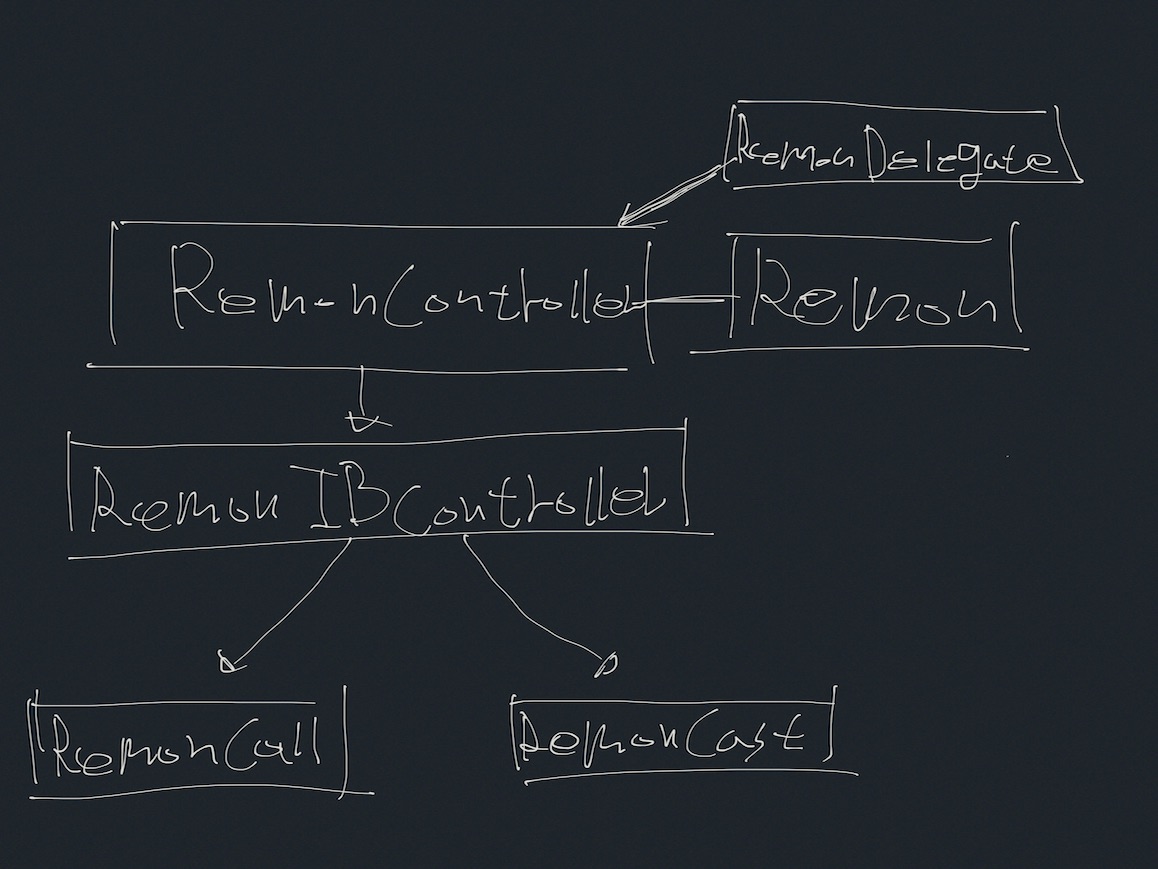 RemonDelegate
RemonController
Remon
RemonIBController
RemonCall
RemonCast